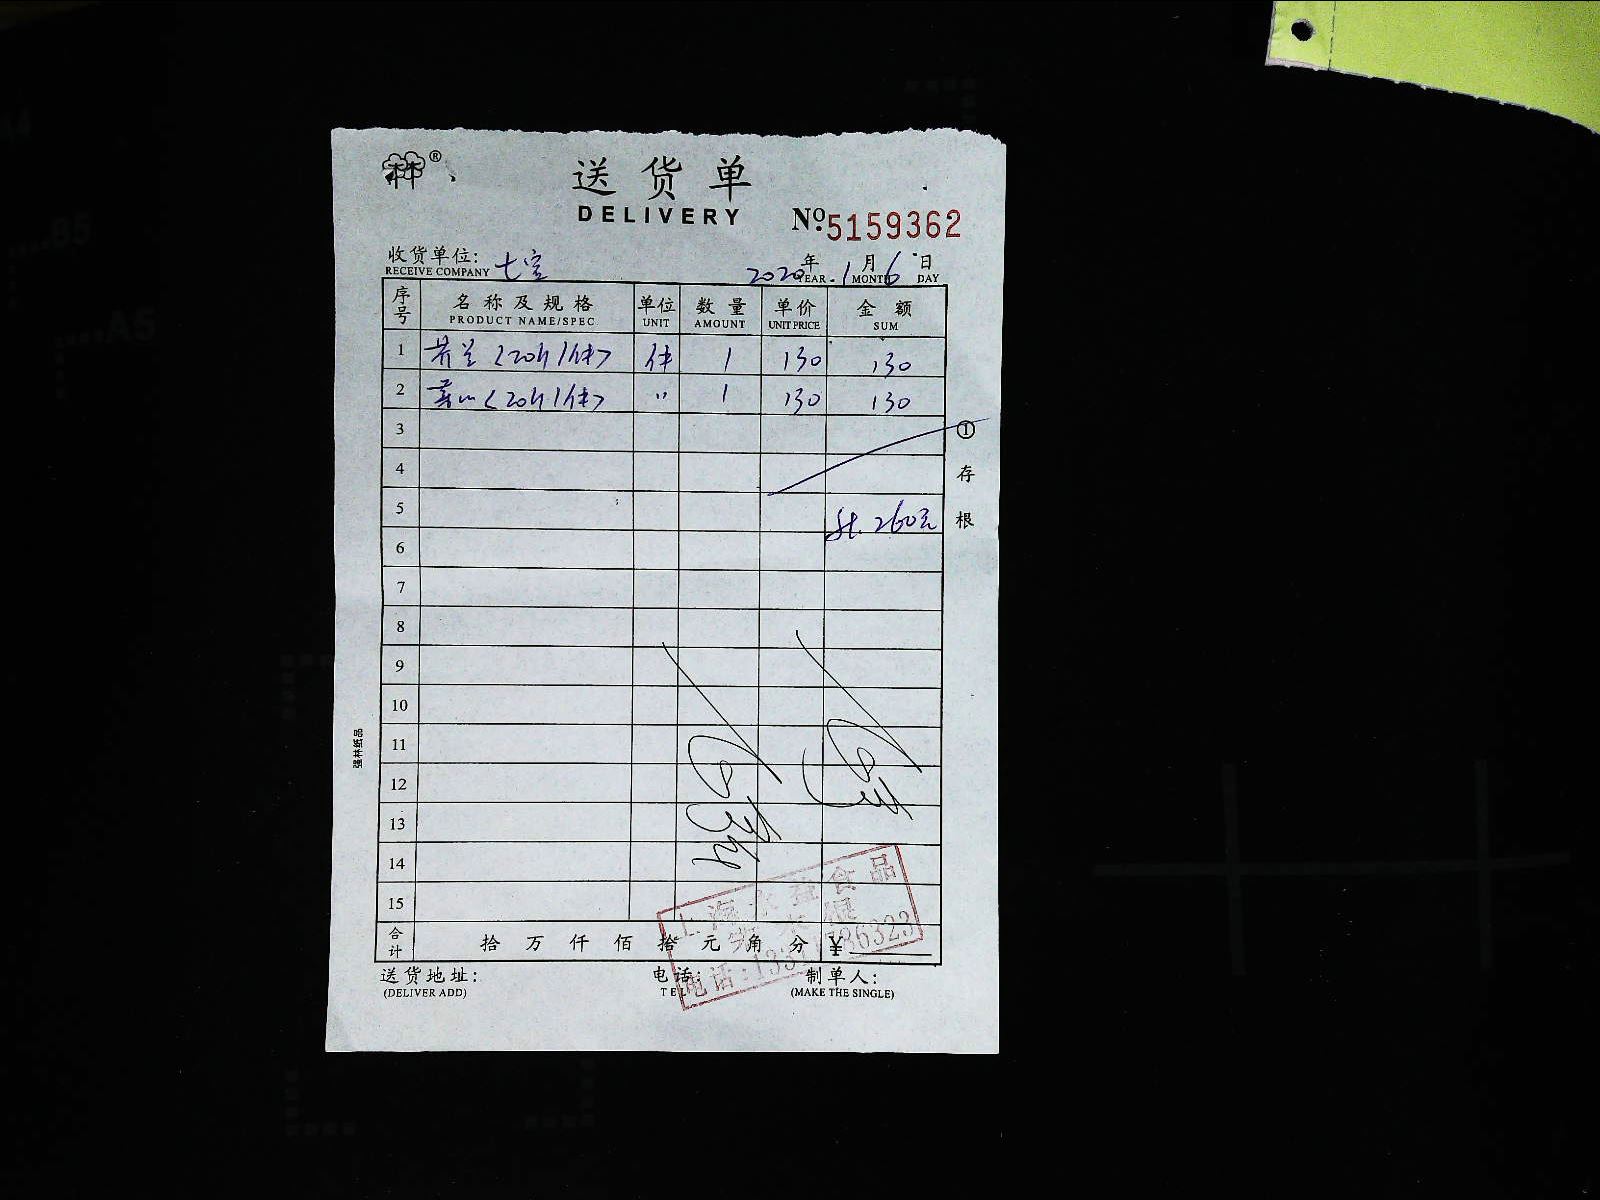 林®
送货单
DELIVERY
№:5159362
收货单位: 七宝
RECEIVE COMPANY
2020年 1月 6日
YEAR MONTH DAY
序号 名称及规格 单位 数量 单价 金额
PRODUCT NAME/SPEC UNIT AMOUNT UNIT PRICE SUM
1 1 130 130
2 〃 1 130 130
3
4
5 260元
6
7
8
9
10
11
12
13
14
15
① 存根
强林纸品
合计 拾 万 仟 佰 拾 元 角 分 ¥
送货地址: 电话: 制单人:
(DELIVER ADD) TEL (MAKE THE SINGLE)
上海 食品
电话: